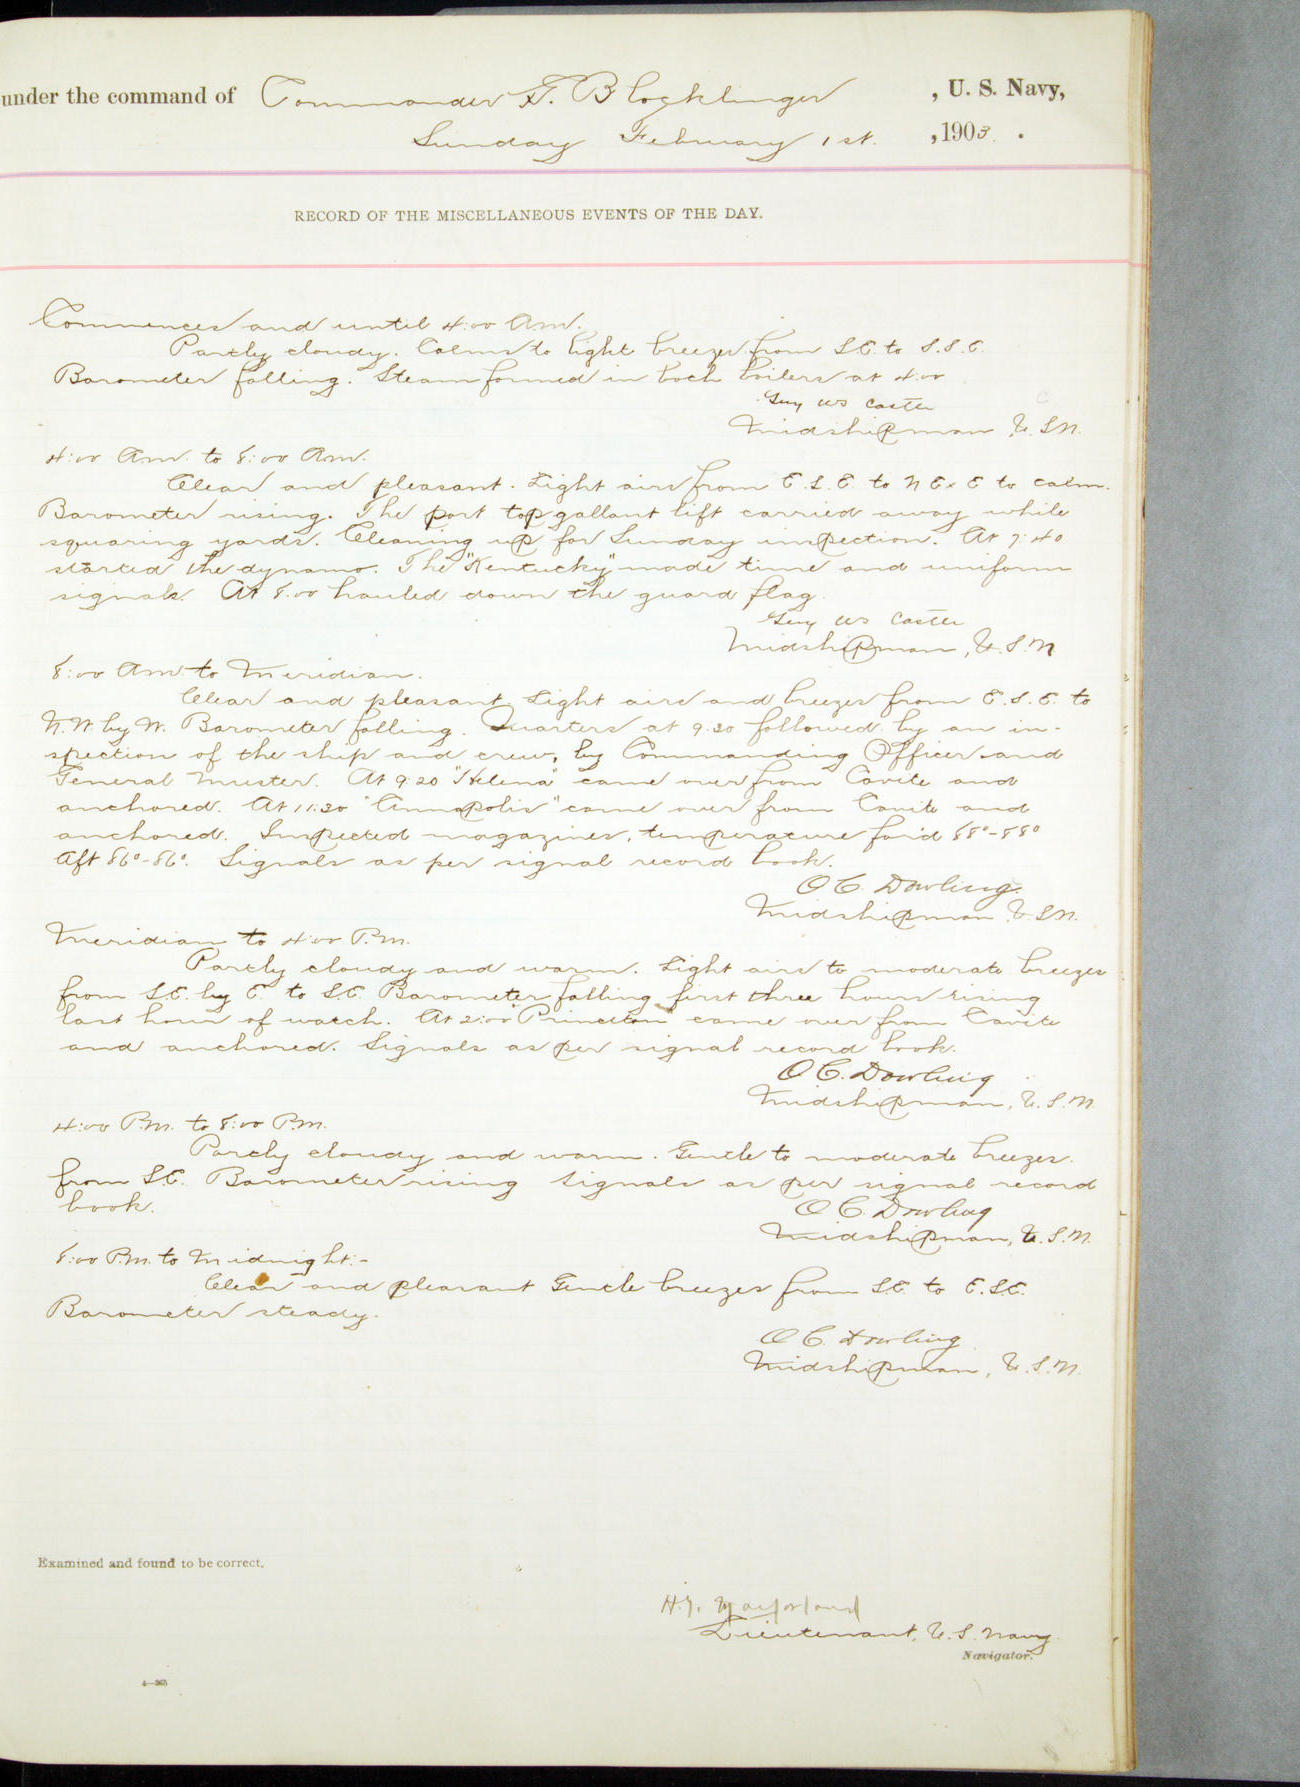 under the command of Commander G. Blocklinger, U. S. Navy,
Sunday February 1st. , 1903.
RECORD OF THE MISCELLANEOUS EVENTS OF THE DAY.
Commences and until 4:00 Am.
Partly cloudy. Calms to light breezes from S.E. to S.S.E.
Barometer falling. Steam formed in both boilers at 4:00
Guy WS Castle
Midshipman, U.S.N.
4:00 Am. to 8:00 Am.
Clear and pleasant. Light airs from E.S.E. to N E x E to calm.
Barometer rising. The port top gallant lift carried away while
squaring yards. Cleaning up for Sunday inspection. At 7:40
started the dynamo. The "Kentucky" made time and uniform
signals. At 8:00 hauled down the guard flag.
Guy WS Castle
Midshipman, U.S.N
8:00 Am. to Meridian.
Clear and pleasant. Light airs and breezes from E.S.E. to
N.W. by W. Barometer falling. Quarters at 9:30 followed by an in-
spection of the ship and crew, by Commanding Officer and
General Muster. At 9:20 "Helena" came over from Cavite and
anchored. At 11:30 "Annapolis" came over from Cavite and
anchored. Inspected magazines, temperature for'd 88°-88°
Aft 86°-86°. Signals as per signal record book.
O C. Dowling.
Midshipman U.S.N.
Meridian to 4:00 P.m.
Partly cloudy and warm. Light airs to moderate breezes
from S.E. by E. to S.E. Barometer falling first three hours rising
last hour of watch. At 2:00 "Princeton" came over from Cavite
and anchored. Signals as per signal record book.
O C. Dowling
Midshipman, U.S.N.
4:00 P.m. to 8:00 P.m.
Partly cloudy and warm. Gentle to moderate breezes.
from S.E. Barometer rising Signals as per signal record
book.
O C. Dowling
Midshipman, U.S.N.
8:00 P.m. to Midnight:-
Clear and pleasant Gentle breezes from S.E. to E.S.E.
Barometer steady.
O C. Dowling
Midshipman, U.S.N.
Examined and found to be correct.
H.
Lieutenant, U.S. Navy
Navigator.